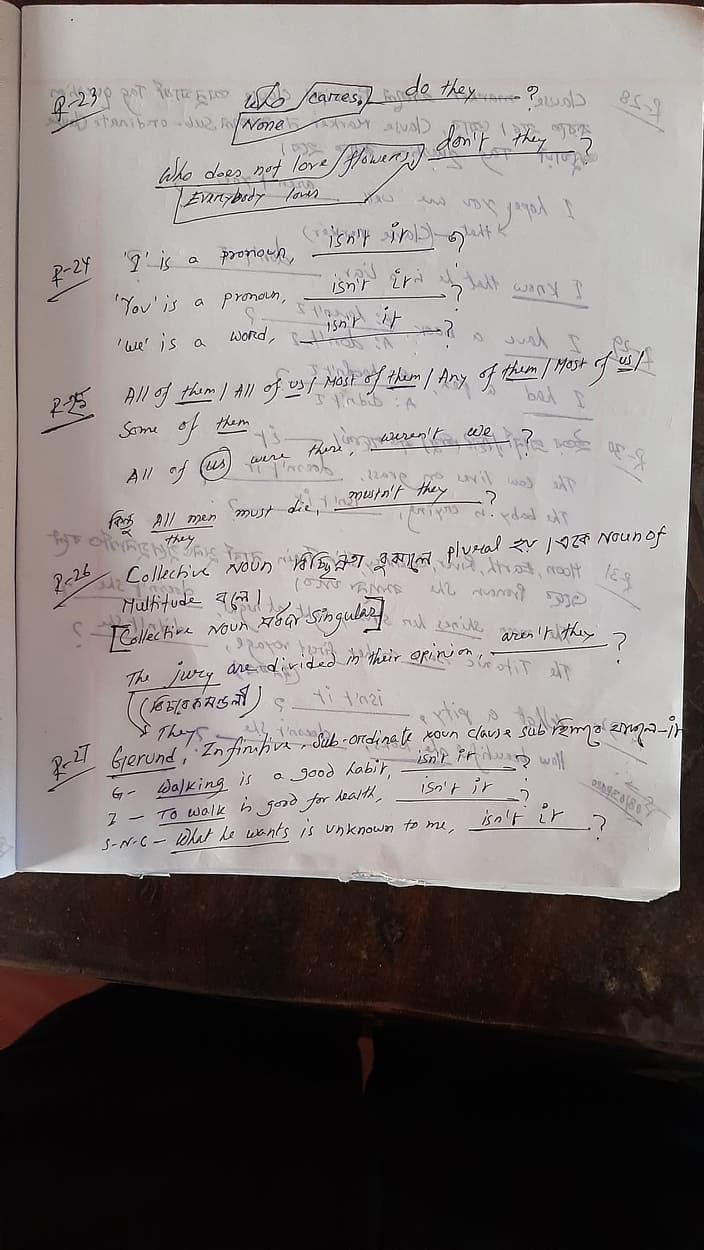 R-23 Who cares, do they ?
None
Who does not love flowers, don't they ?
Everybody loves
R-24 'I' is a pronoun, isn't it ?
'You' is a pronoun, isn't it ?
'we' is a word, isn't it ?
R-25 All of them / All of us / Most of them / Any of them / Most of us /
Some of them
All of us were there, weren't we ?
কিন্তু All men must die, mustn't they ?
they
R-26 Collective Noun বিচ্ছিন্নতা বুঝালে plural হয় । একে Noun of
Multitude বলে।
[Collective Noun সর্বদা Singular]
The jury are divided in their opinion, aren't they ?
(বিচারকমন্ডলী)
They
R-27 Gerund, Infinitive, Sub-ordinate Noun clause sub হিসাবে বসলে-it
G- Walking is a good habit, isn't it ?
I - To walk is good for health, isn't it ?
S-N-C - What he wants is unknown to me, isn't it ?